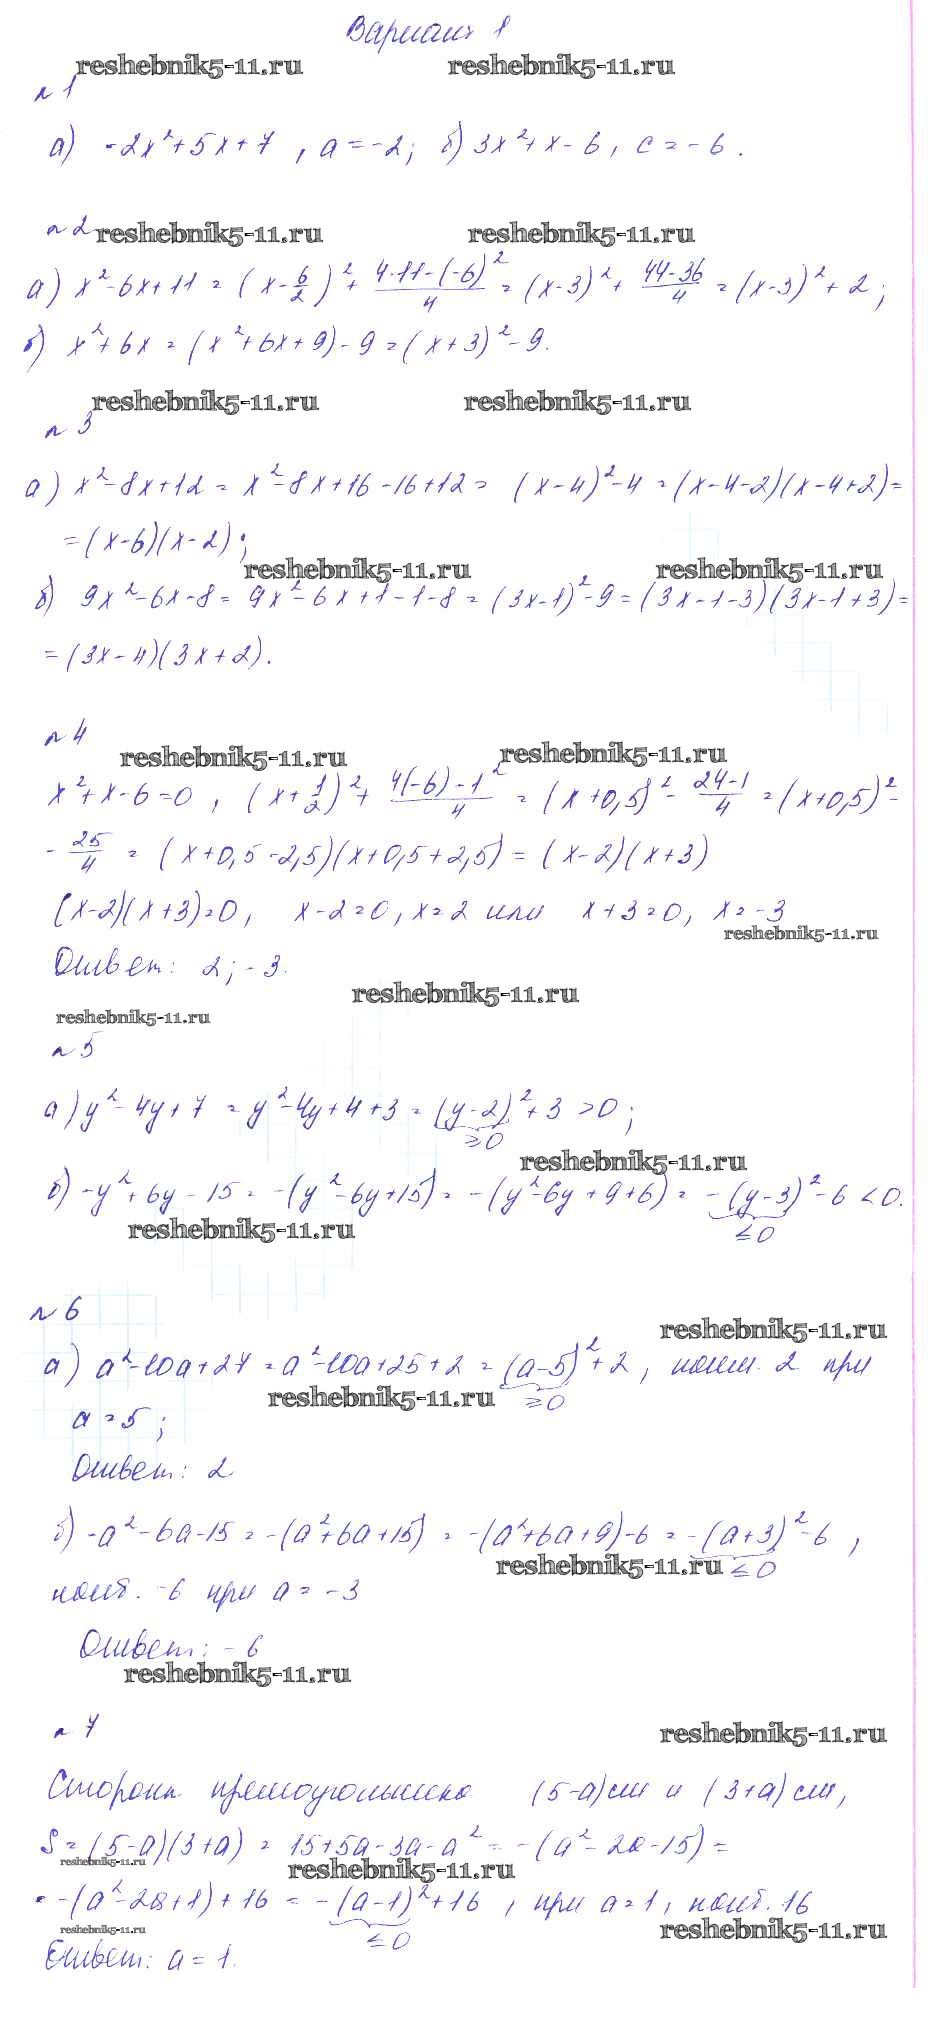 Вариант 1
reshebnik5-11.ru reshebnik5-11.ru
№1
а) -2x²+5x+7, a=-2; б) 3x²+x-6, c=-6.
№2
reshebnik5-11.ru reshebnik5-11.ru
а) x²-6x+11 = (x-6/2)² + (4·11-(-6)²)/4 = (x-3)² + (44-36)/4 = (x-3)²+2;
б) x²+6x = (x²+6x+9)-9 = (x+3)²-9.
reshebnik5-11.ru reshebnik5-11.ru
№3
а) x²-8x+12 = x²-8x+16-16+12 = (x-4)²-4 = (x-4-2)(x-4+2)=
=(x-6)(x-2);
reshebnik5-11.ru reshebnik5-11.ru
б) 9x²-6x-8 = 9x²-6x+1-1-8 = (3x-1)²-9 = (3x-1-3)(3x-1+3)=
=(3x-4)(3x+2).
№4
reshebnik5-11.ru reshebnik5-11.ru
x²+x-6=0, (x+1/2)² + (4(-6)-1²)/4 = (x+0,5)² - (24-1)/4 = (x+0,5)²-
-25/4 = (x+0,5-2,5)(x+0,5+2,5) = (x-2)(x+3)
(x-2)(x+3)=0, x-2=0, x=2 или x+3=0, x=-3
reshebnik5-11.ru
Ответ: 2; -3.
reshebnik5-11.ru
reshebnik5-11.ru
№5
а) y²-4y+7 = y²-4y+4+3 = (y-2)²+3 >0;
≥0
reshebnik5-11.ru
б) -y²+6y-15 = -(y²-6y+15) = -(y²-6y+9+6) = -(y-3)²-6 <0.
reshebnik5-11.ru ≤0
№6
reshebnik5-11.ru
а) a²-10a+27 = a²-10a+25+2 = (a-5)²+2, наим. 2 при
reshebnik5-11.ru ≥0
a=5;
Ответ: 2
б) -a²-6a-15 = -(a²+6a+15) = -(a²+6a+9)-6 = -(a+3)²-6,
reshebnik5-11.ru ≤0
наиб. -6 при a=-3
Ответ: -6
reshebnik5-11.ru
№7
reshebnik5-11.ru
Стороны прямоугольника (5-a)см и (3+a)см,
S=(5-a)(3+a) = 15+5a-3a-a² = -(a²-2a-15)=
reshebnik5-11.ru reshebnik5-11.ru
=-(a²-2a+1)+16 = -(a-1)²+16, при a=1, наиб. 16
reshebnik5-11.ru ≤0 reshebnik5-11.ru
Ответ: a=1.